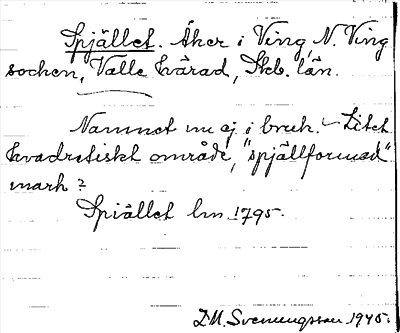 Spjället. Åker i Ving, N. Ving
socken, Valle härad, Skb. län.
Namnet nu ej i bruk. – Litet
kvadratiskt område, "spjällformad"
mark?
Spiället lm. 1795.
D.M. Svenungsson 1945.